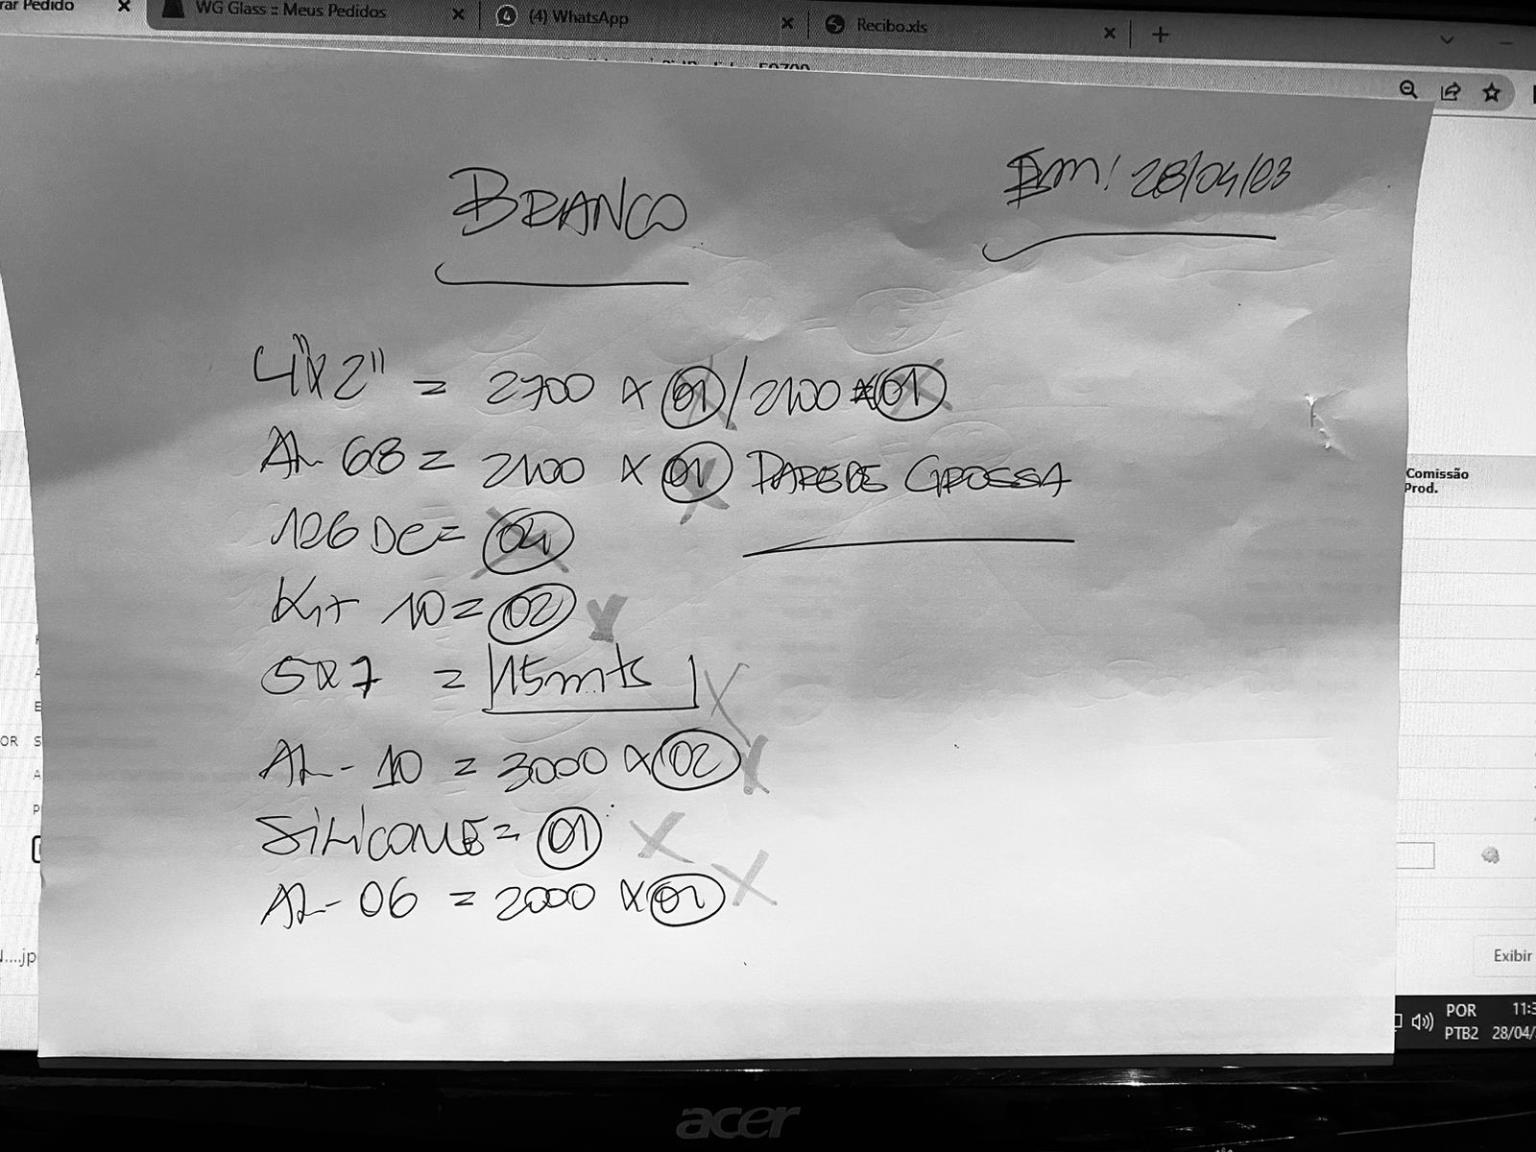 rar Pedido
WG Glass :: Meus Pedidos
(4) WhatsApp
Recibo.xls
BRANCO
Em: 28/04/23
4"x2" = 2700 x 01 / 2100 x 01
AL-68 = 2100 x 01 PAREDE GROSSA
126 DC = 04
Kit 10 = 02
5x7 = 15mts
AL-10 = 3000 x 02
SILICONE = 01
AL-06 = 2000 x 01
Comissão
Prod.
OR
....jp
Exibir
POR
11:3
PTB2
28/04/
acer